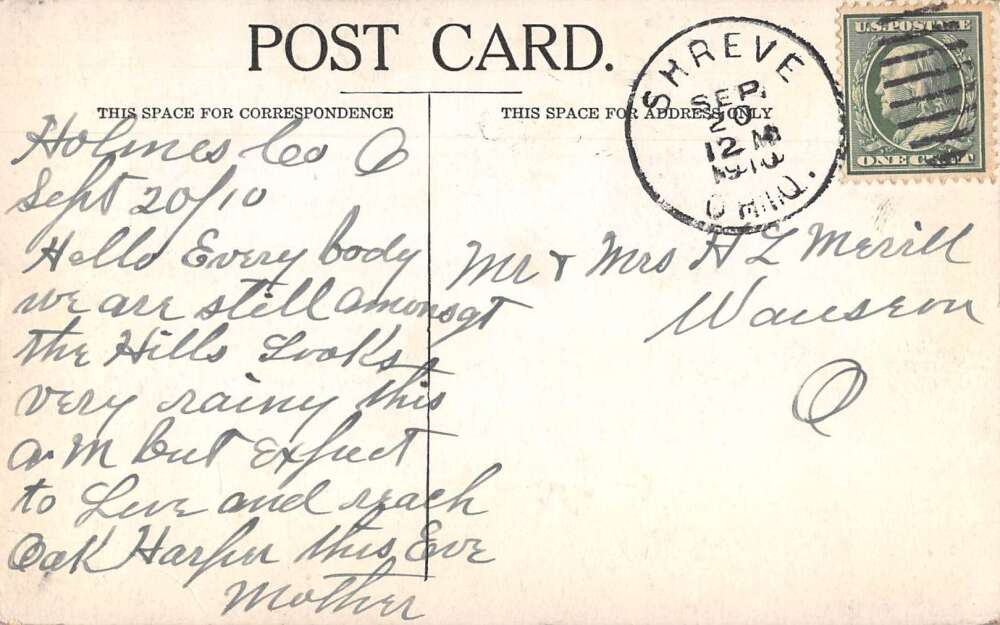 POST CARD.
THIS SPACE FOR CORRESPONDENCE
THIS SPACE FOR ADDRESS ONLY
SHREVE
SEP.
20
12 M
1910
OHIO.
U.S. POSTAGE
ONE CENT
Holmes Co O
Sept 20/10
Hello Every body
we are still amonsgt
the Hills Looks
very rainy this
a.m but Expect
to Live and reach
Oak Harper this Eve
Mother
Mr & Mrs H L Merrill
Wauseon
O